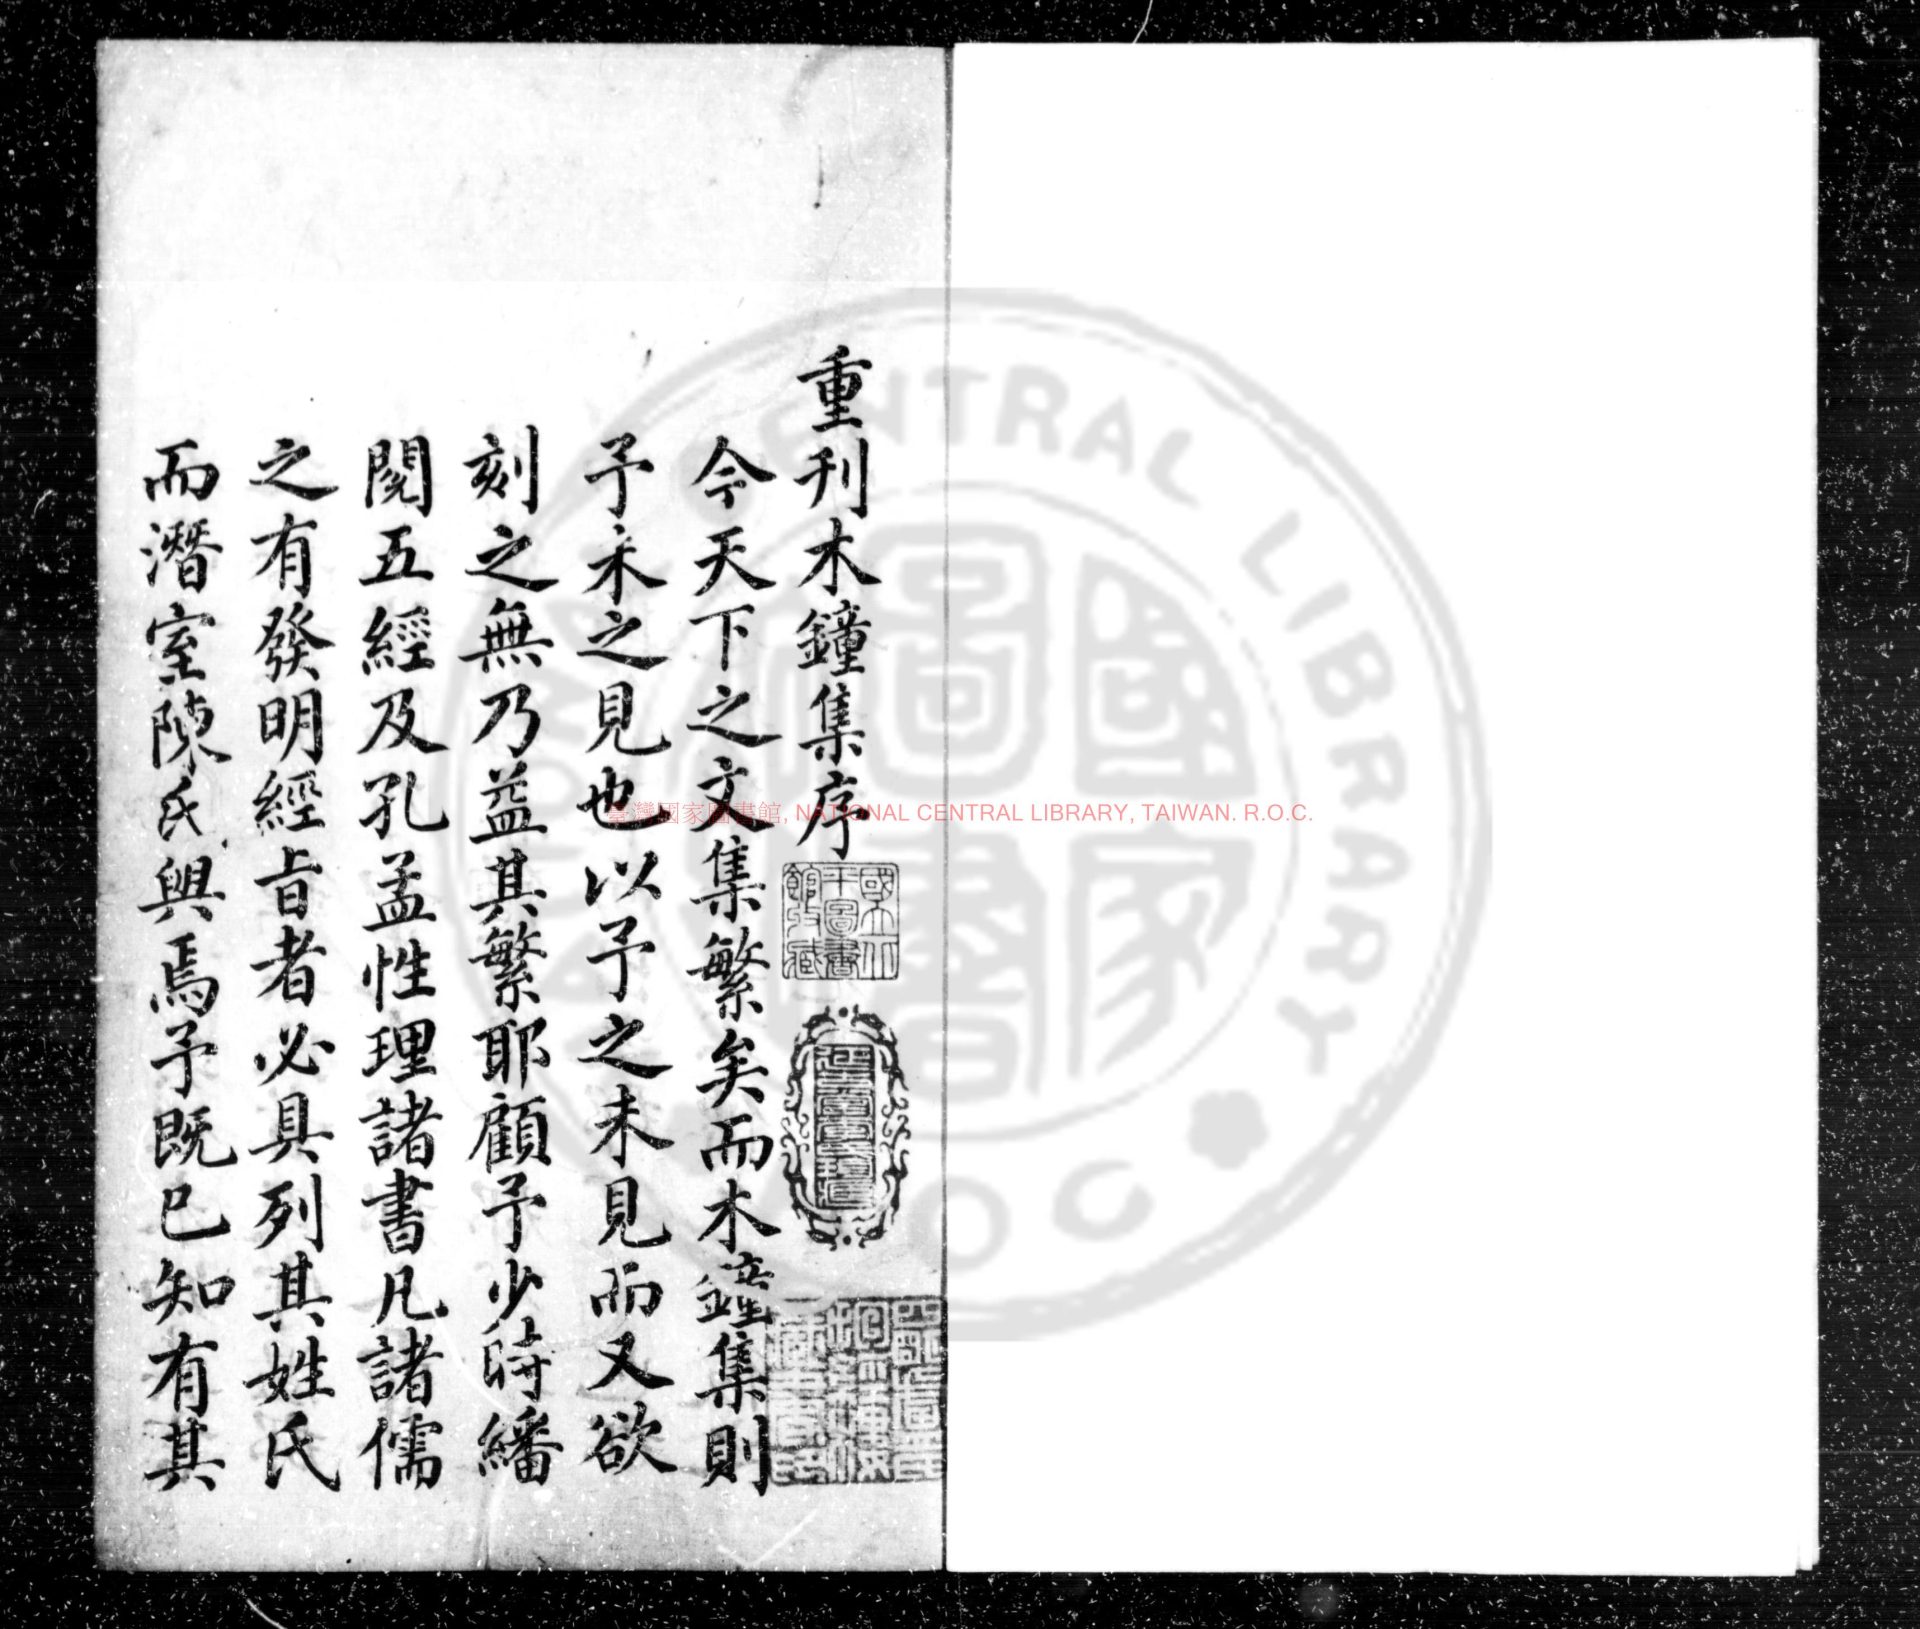 重刊木鐘集序
今天下之文集繁矣而木鐘集則
予未之見也以予之未見而又欲
刻之無乃益其繁耶顧予少時繙
閱五經及孔孟性理諸書凡諸儒
之有發明經旨者必具列其姓氏
而潛室陳氏與焉予既已知有其
國立北平圖書館收藏
臺灣國家圖書館, NATIONAL CENTRAL LIBRARY, TAIWAN. R.O.C.
NATIONAL CENTRAL LIBRARY
R.O.C
國家圖書